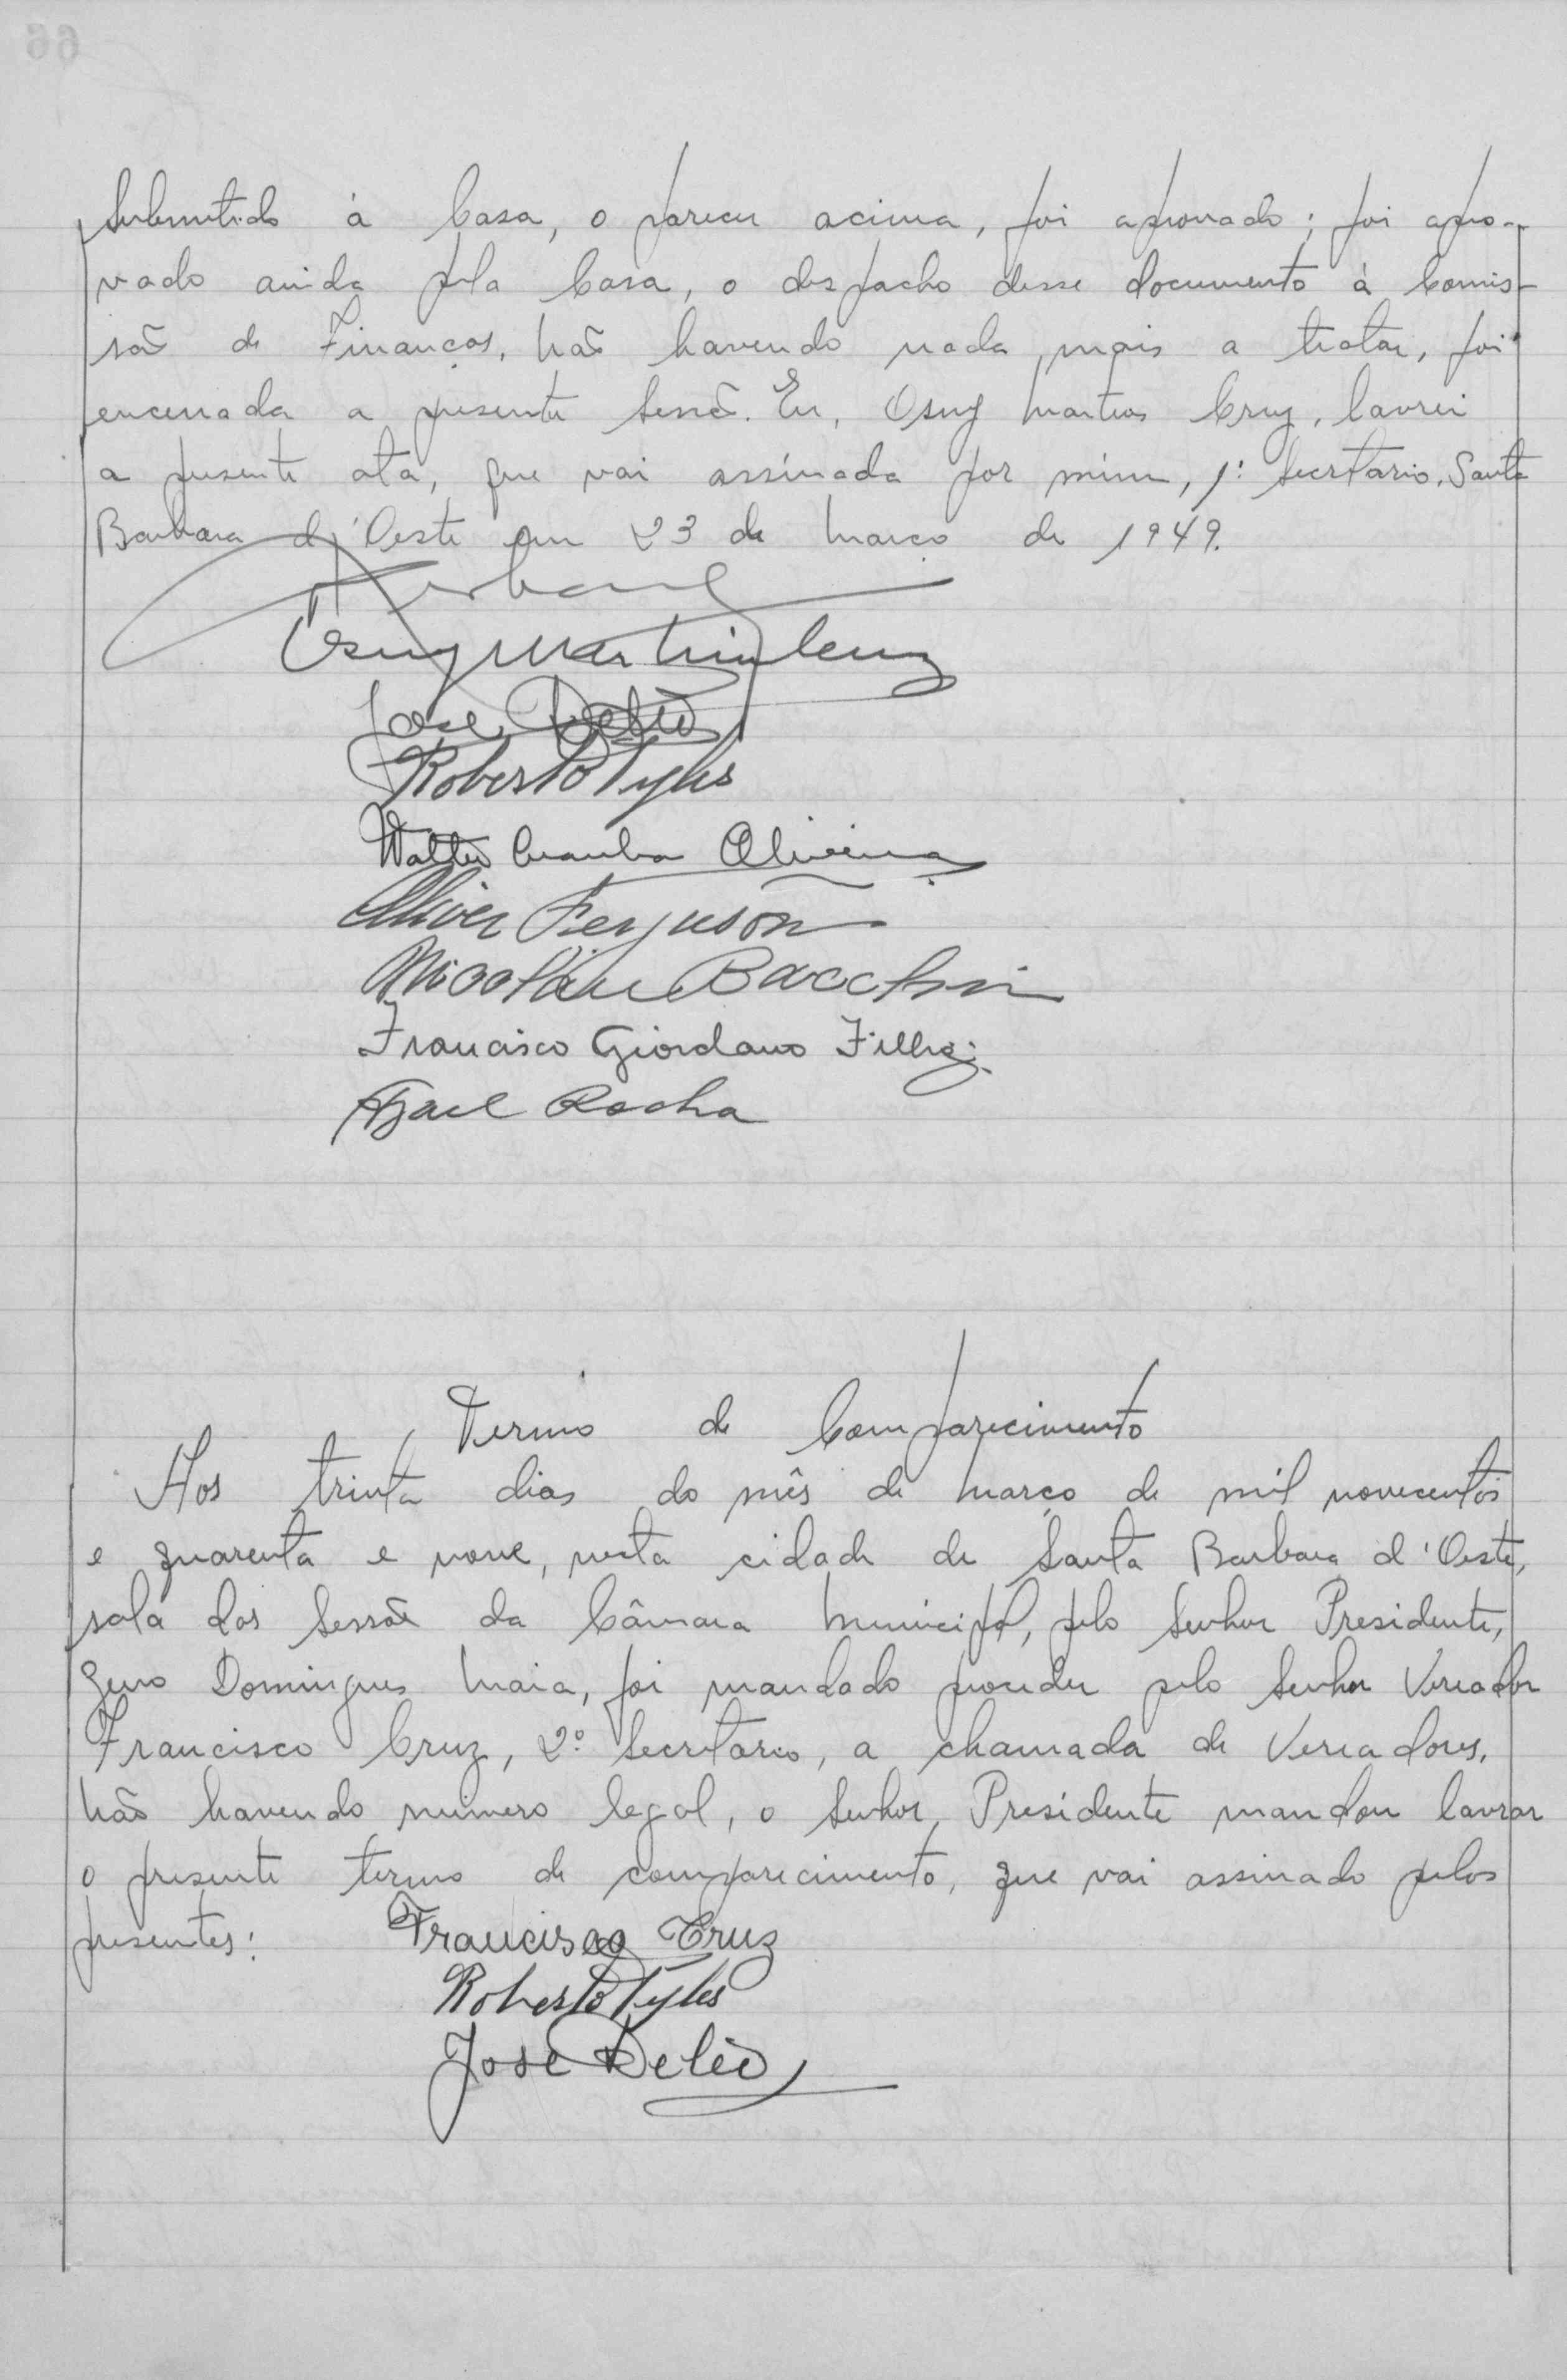 submetido à Casa, o parecer acima, foi aprovado; foi apro-
vado ainda pela Casa, o despacho desse documento à Comis-
são de Finanças. Não havendo nada mais a tratar, foi
encerrada a presente sessão. Eu, Osny Martins Cruz, lavrei
a presente ata, que vai assinada por mim, 1º secretario. Santa
Barbara d'Oeste em 23 de Março de 1949.
Osny Martins Cruz
José Deleo
Roberto Pyles
Walter Oliveira
Oliver Ferguson
Nicolau Bacchin
Francisco Giordano Filho
Azael Rocha
Termo de Comparecimento
Aos trinta dias do mês de Março de mil novecentos
e quarenta e nove, nesta cidade de Santa Barbara d'Oeste,
sala das Sessão da Câmara Municipal, pelo Senhor Presidente,
Zeno Domingues Maia, foi mandado proceder pelo Senhor Vereador
Francisco Cruz, 2º Secretario, a chamada de Vereadores.
Não havendo numero legal, o Senhor Presidente mandou lavrar
o presente termo de comparecimento, que vai assinado pelos
presentes: Francisco Cruz
Roberto Pyles
José Deleo